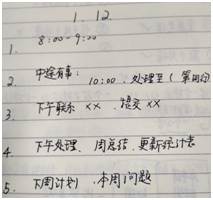 1. 12.
1. 8:00-9:00
2. 中途有事: 10:00. 处理至(第
3. 下午联系 ××. 提交 ××
4. 下午处理. 周总结. 更新统计表
5. 下周计划. 本周问题